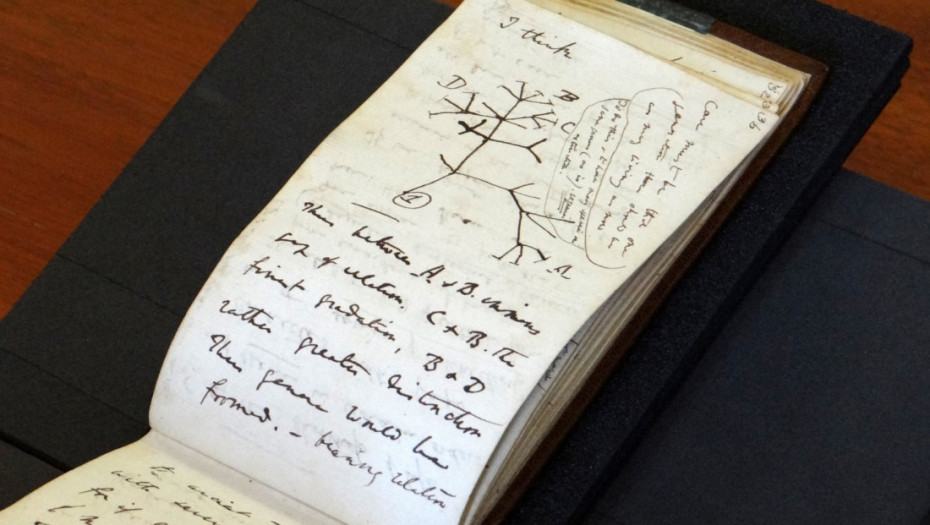 I think
D
B
C
A
1
Case must be that one
generation then should be
as many living as now
To do this & to have many species in
same genus (as is) requires
extinction
Thus between A & B. immens
gap of relation. C & B. The
finest gradation, B & D
rather greater distinction
Thus genera would be
formed. — bearing relation
to ancient
with several